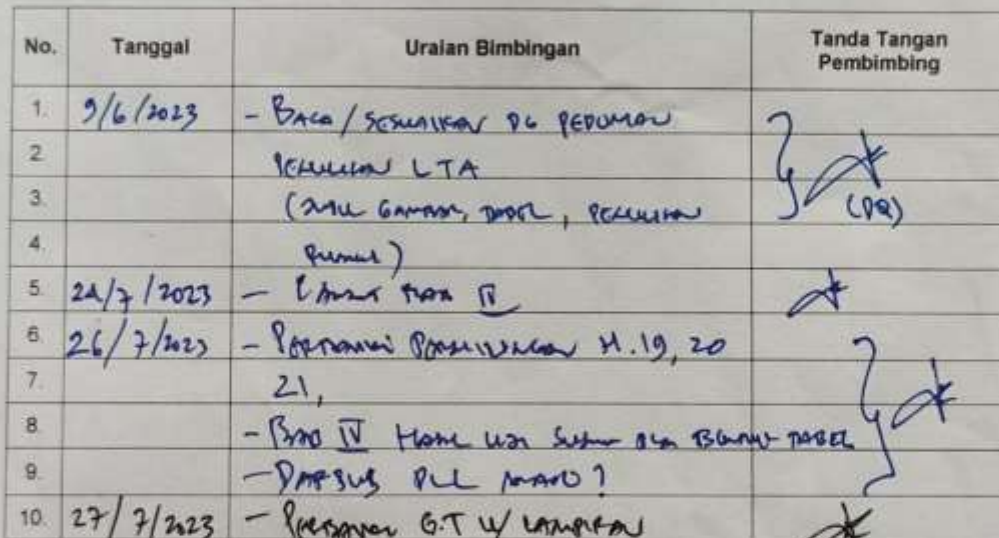 No. Tanggal Uraian Bimbingan Tanda Tangan Pembimbing
1. 9/6/2023 - BACA/SESUAIKAN DG PEDOMAN
2. PENULISAN LTA
3. GAMBAR, TABEL, PENULISAN (DQ)
4. RUMUS)
5. 24/7/2023 - LANJUT BAB IV
6. 26/7/2023 - PERBAIKI H. 19, 20
7. 21,
8. - BAB IV HASIL UJI TABEL
9. - DAPSUS DLL MANA?
10. 27/7/2023 - G.T U/ LAMPIRAN